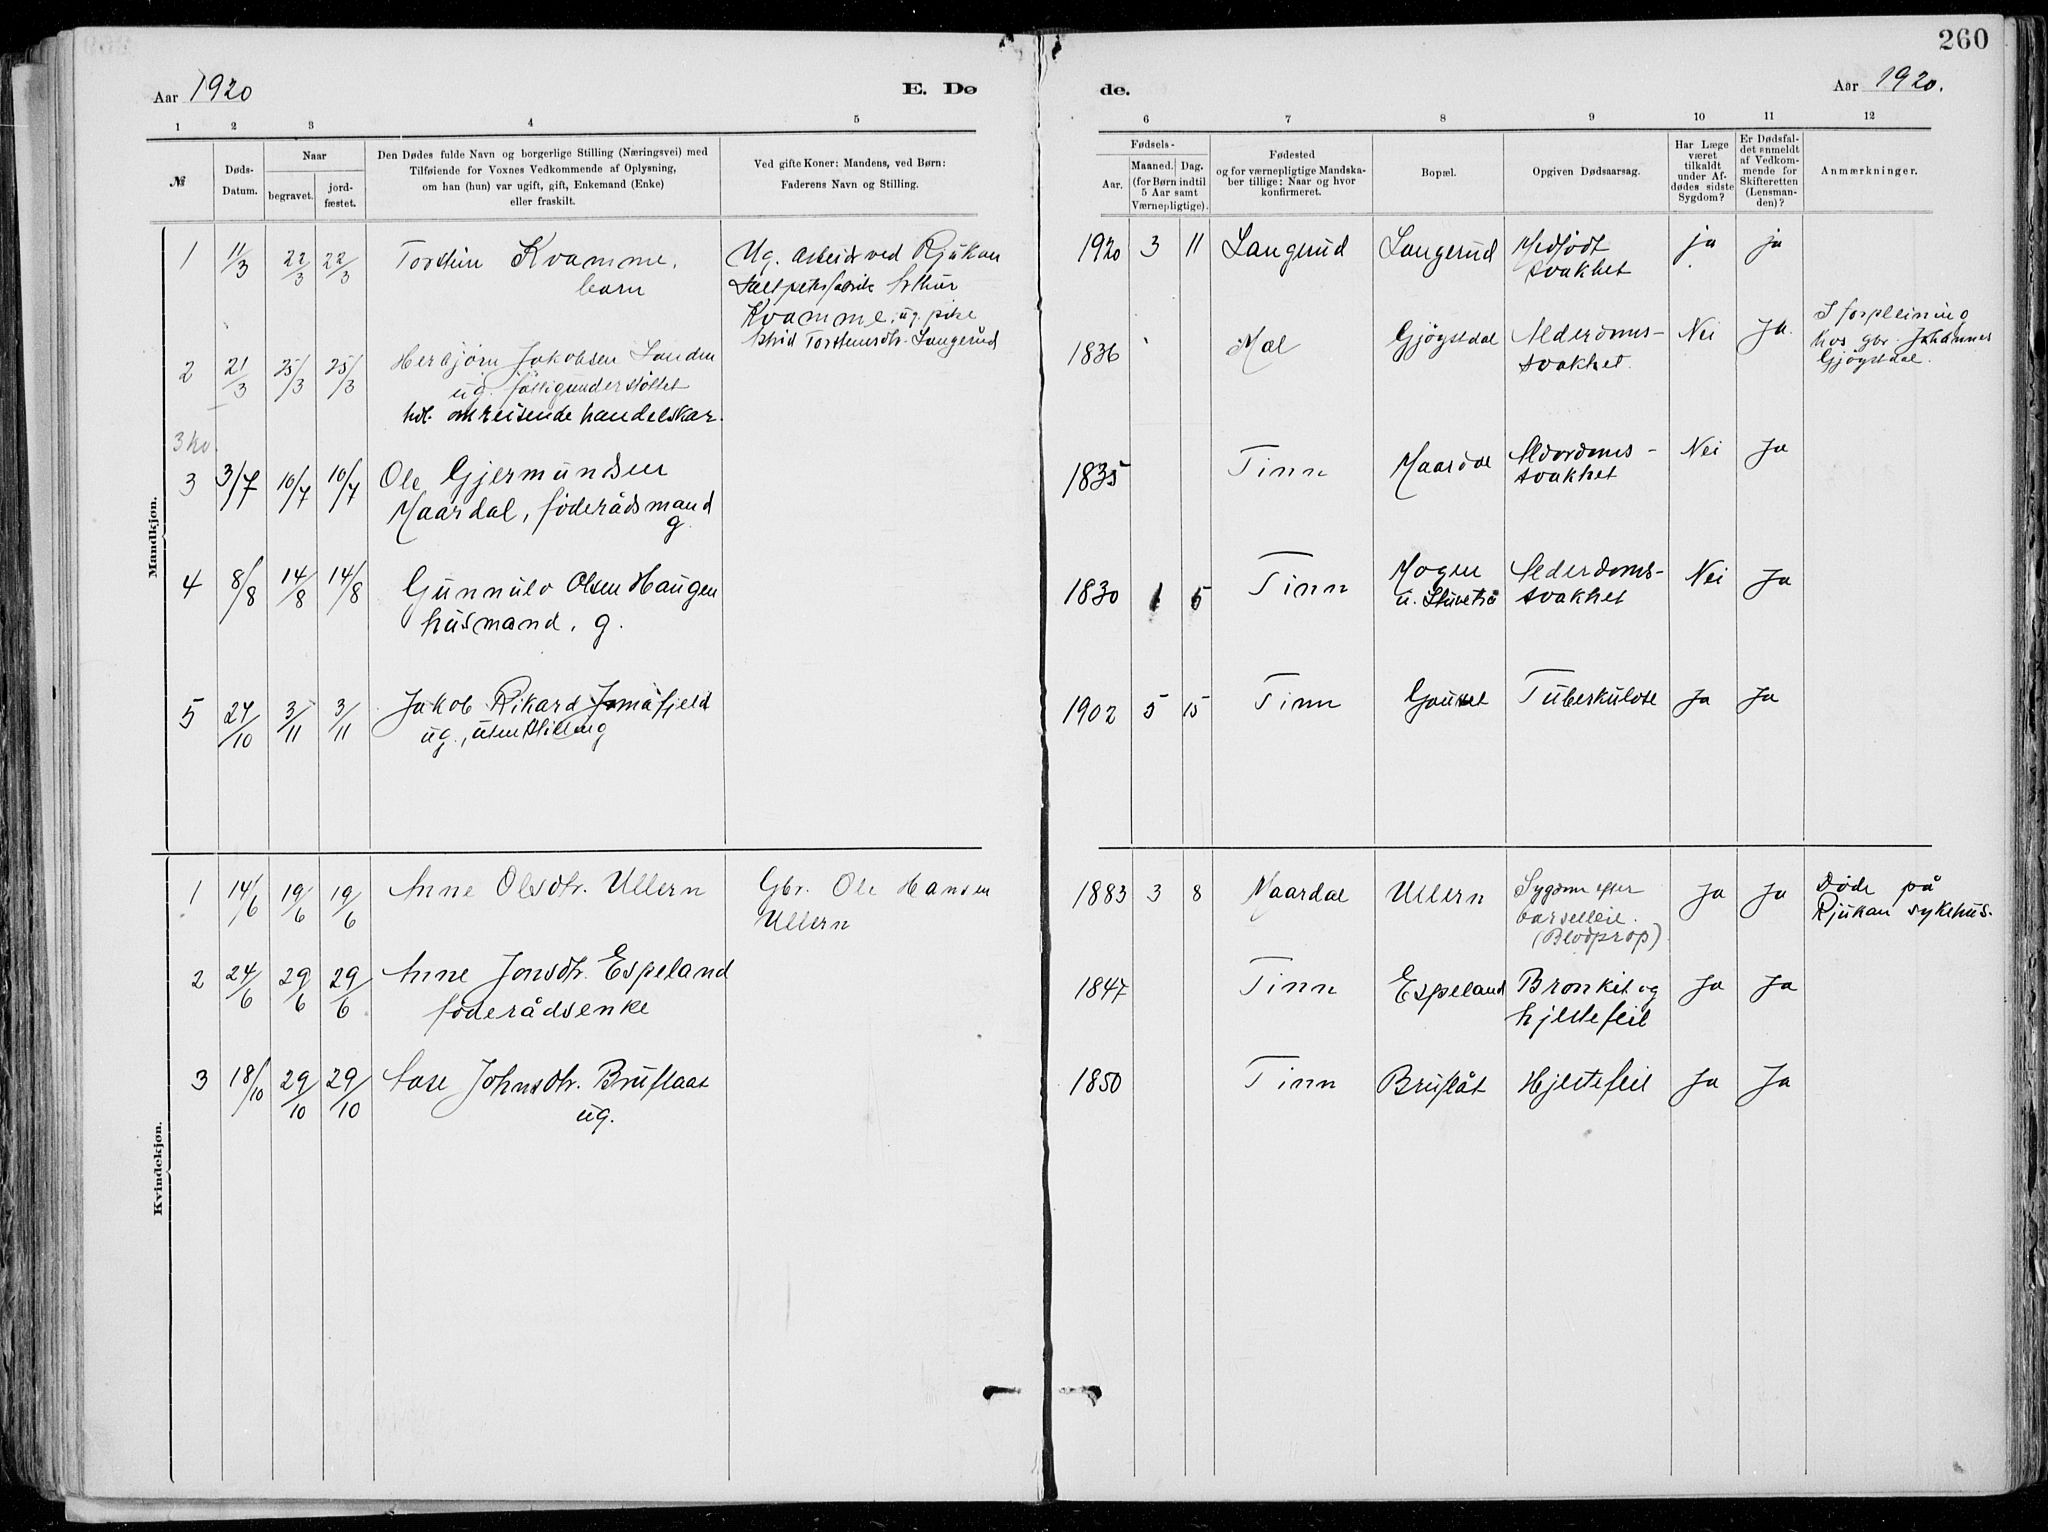 260
Aar 1920
E. Dø
de.
Aar 1920.
1 2 3 4 5
6 7 8 9 10 11 12
№
Døds-
Datum.
Naar
begravet.
jord-
fæstet.
Den Dødes fulde Navn og borgerlige Stilling (Næringsvei) med
Tilføiende for Voxnes Vedkommende af Oplysning,
om han (hun) var ugift, gift, Enkemand (Enke)
eller fraskilt.
Ved gifte Koner: Mandens, ved Børn:
Faderens Navn og Stilling.
Fødsels-
Aar.
Maaned. Dag.
(for Børn indtil
5 Aar samt
Værnepligtige).
Fødested
og for værnepligtige Mandska-
ber tillige: Naar og hvor
konfirmeret.
Bopæl.
Opgiven Dødsaarsag.
Har Læge
været
tilkaldt
under Af-
dødes sidste
Sygdom?
Er Dødsfal-
det anmeldt
af Vedkom-
mende for
Skifteretten
(Lensman-
den)?
Anmærkninger.
Mandkjøn.
1 11/3 22/3 22/3 Torstein Kvamme,
barn
Ug. arbeider ved Rjukan
Saltpeterfabrik Arthur
Kvamme, ug. pike
Astrid Torstensdtr. Langerud
1920 3 11 Langerud Langerud Medfødt
svakhet
ja ja
2 21/3 25/3 25/3 Herbjørn Jakobsen Landen
ug. fattigunderstøttet
omreisende handelskar.
1836 Mæl Gjøystdal Alderdoms-
svakhet.
Nei Ja.
I forpleining
hos gbr. Johannes
Gjøystdal.
3 kv.
3 3/7 10/7 10/7 Ole Gjermundsen
Maardal, føderådsmand
g.
1835 Tinn Maardal Alderdoms-
svakhet
Nei Ja
4 8/8 14/8 14/8 Gunnulv Olsen Haugen
husmand, g.
1830 1 5 Tinn Mogen
u.
Alderdoms-
svakhet
Nei Ja
5 27/10 3/11 3/11 Jakob Rikard
ug., uten stilling
1902 5 15 Tinn Gauset Tuberkulose Ja Ja
Kvindekjøn.
1 14/6 19/6 19/6 Anne Olsdtr. Ullern
Gbr. Ole Hansen
Ullern
1883 3 8 Maardal Ullern Sygdom efter
barselleie.
(Blodprop)
Ja Ja
Døde på
Rjukan sykehus.
2 24/6 29/6 29/6 Anne Jonsdtr. Espeland
føderådsenke
1847 Tinn Espeland Bronkit og
hjertefeil
Ja Ja
3 18/10 29/10 29/10 Aase Johnsdtr. Bruflaat
ug.
1850 Tinn Bruflåt Hjertefeil Ja Ja